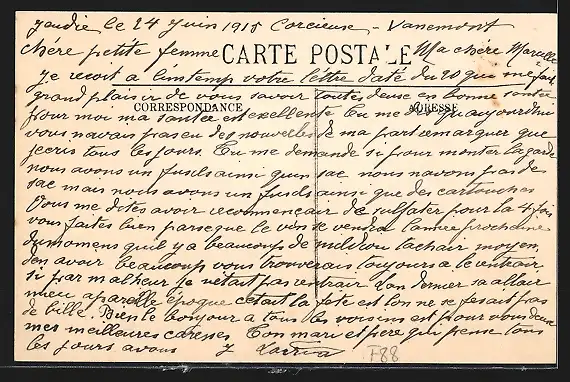 Jeudie le 24 Juin 1915 Corcieuse - Vanemont
chère petite femme CARTE POSTALE Ma chère Marcelle
Je recoit a linstemp votre lettre daté du 20 qui me fait
grand plaisir de vous savoir toutes deuse en bonne santée
CORRESPONDANCE ADRESSE
pour moi ma santée est exellente tu me dis qu aujourdhui
vous navais pas eu des nouvelles de ma part remarquer que
jecris tous les jours. Tu me demande si pour monter la garde
nous avons un fusils ainsi quun sac nous navons pas de
sac mais nous avons un fusils ainsi que des cartouches
Vous me dites avoir recommencair de sulfater pour la 4 fois
vous faites bien parseque le vin se vendra lanée prochaine
du momens quil y a beaucoups de mildiou lachair moyen
den avoir beaucoup vous trouverais toujours a le ventrair
si par malheur je nétait pas rentrair Lan dernier sa allair
mieu aparelle époque cetait la fete est lon ne se fesait pas
de bille. Bien le bonjour a tous les voisins est pour vous deuse
mes meilleures caresses Ton mari et père qui pense tous
les jours avous
F88